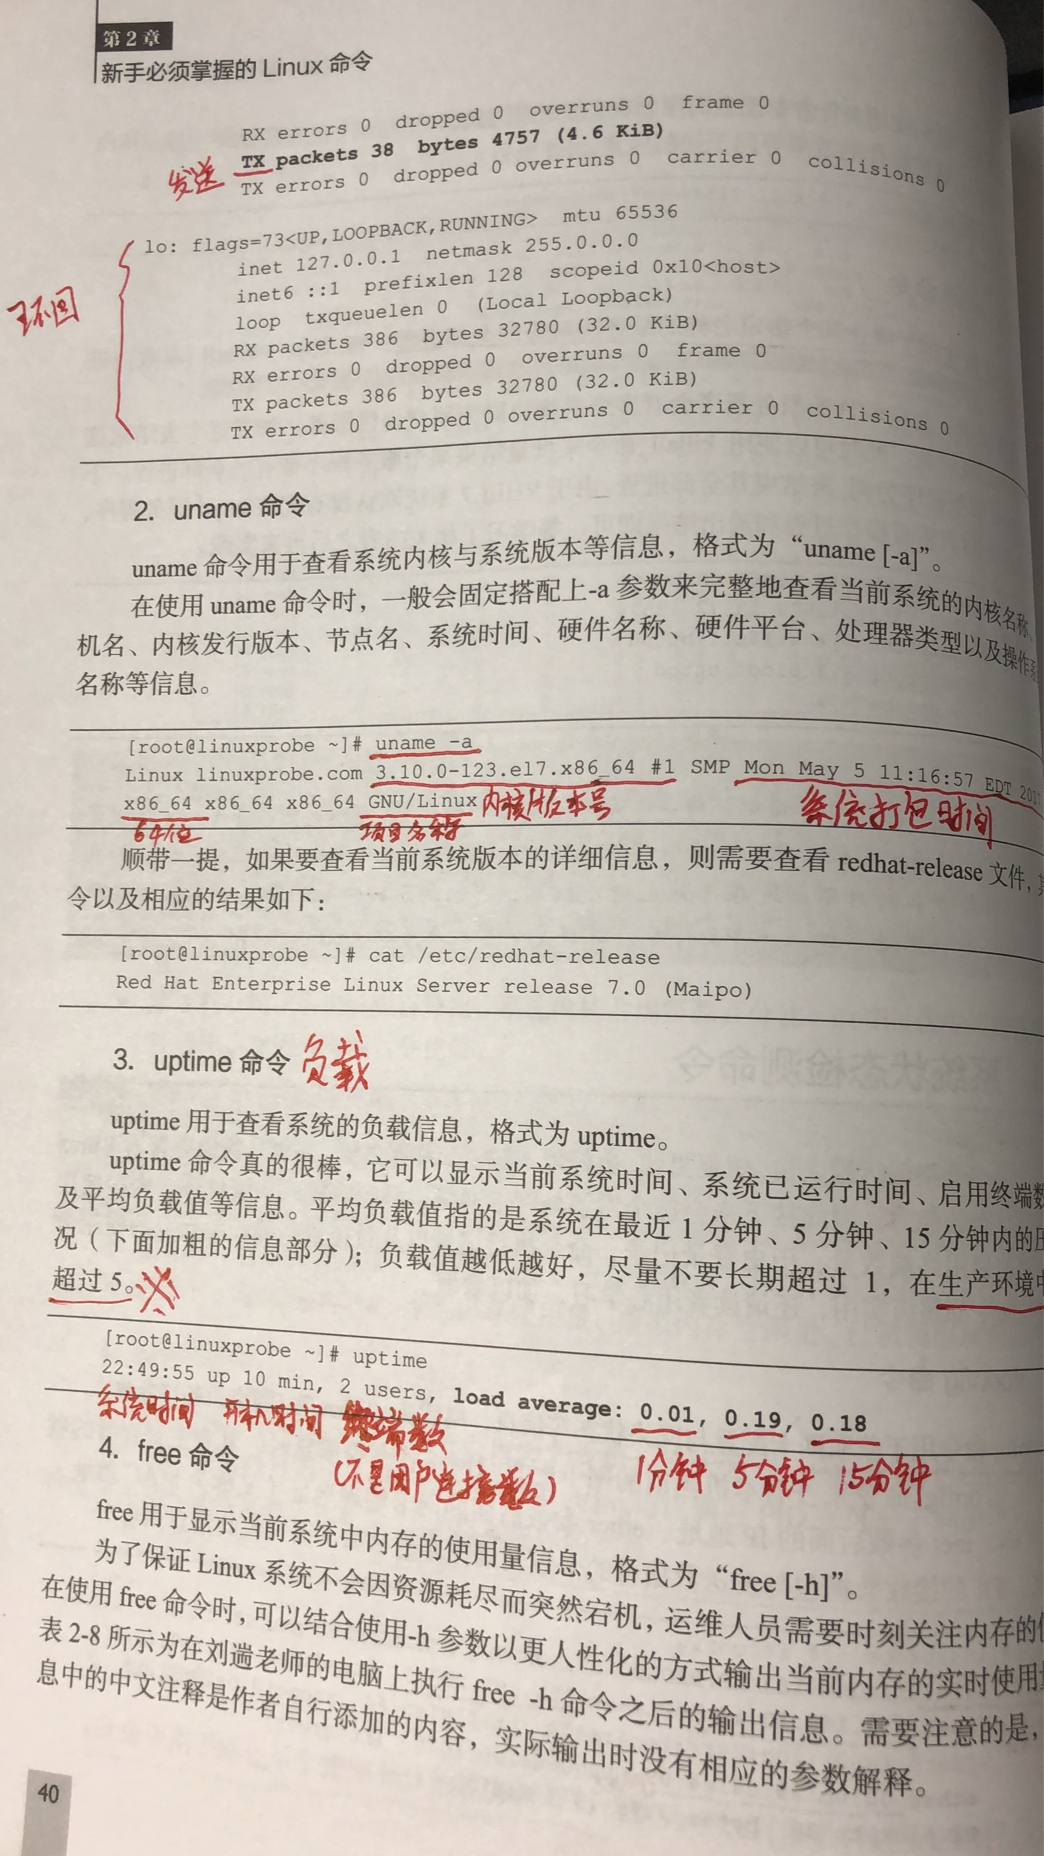 第2章
新手必须掌握的 Linux 命令
RX errors 0 dropped 0 overruns 0 frame 0
发送 TX packets 38 bytes 4757 (4.6 KiB)
TX errors 0 dropped 0 overruns 0 carrier 0 collisions 0
lo: flags=73<UP,LOOPBACK,RUNNING> mtu 65536
inet 127.0.0.1 netmask 255.0.0.0
inet6 ::1 prefixlen 128 scopeid 0x10<host>
环回 loop txqueuelen 0 (Local Loopback)
RX packets 386 bytes 32780 (32.0 KiB)
RX errors 0 dropped 0 overruns 0 frame 0
TX packets 386 bytes 32780 (32.0 KiB)
TX errors 0 dropped 0 overruns 0 carrier 0 collisions 0
2. uname 命令
uname 命令用于查看系统内核与系统版本等信息，格式为“uname [-a]”。
在使用 uname 命令时，一般会固定搭配上-a 参数来完整地查看当前系统的内核名称、
机名、内核发行版本、节点名、系统时间、硬件名称、硬件平台、处理器类型以及操作系
名称等信息。
[root@linuxprobe ~]# uname -a
Linux linuxprobe.com 3.10.0-123.el7.x86_64 #1 SMP Mon May 5 11:16:57 EDT 201
x86_64 x86_64 x86_64 GNU/Linux 内核版本号 系统打包时间
64位 项目名称
顺带一提，如果要查看当前系统版本的详细信息，则需要查看 redhat-release 文件，其
令以及相应的结果如下：
[root@linuxprobe ~]# cat /etc/redhat-release
Red Hat Enterprise Linux Server release 7.0 (Maipo)
3. uptime 命令 负载
uptime 用于查看系统的负载信息，格式为 uptime。
uptime 命令真的很棒，它可以显示当前系统时间、系统已运行时间、启用终端数
及平均负载值等信息。平均负载值指的是系统在最近 1 分钟、5 分钟、15 分钟内的压
况（下面加粗的信息部分）；负载值越低越好，尽量不要长期超过 1，在生产环境中
超过 5。
[root@linuxprobe ~]# uptime
22:49:55 up 10 min, 2 users, load average: 0.01, 0.19, 0.18
系统时间 开机时间 终端数
(不是用户连接数) 1分钟 5分钟 15分钟
4. free 命令
free 用于显示当前系统中内存的使用量信息，格式为“free [-h]”。
为了保证 Linux 系统不会因资源耗尽而突然宕机，运维人员需要时刻关注内存的使
在使用 free 命令时，可以结合使用-h 参数以更人性化的方式输出当前内存的实时使用量
表 2-8 所示为在刘遄老师的电脑上执行 free -h 命令之后的输出信息。需要注意的是，
息中的中文注释是作者自行添加的内容，实际输出时没有相应的参数解释。
40